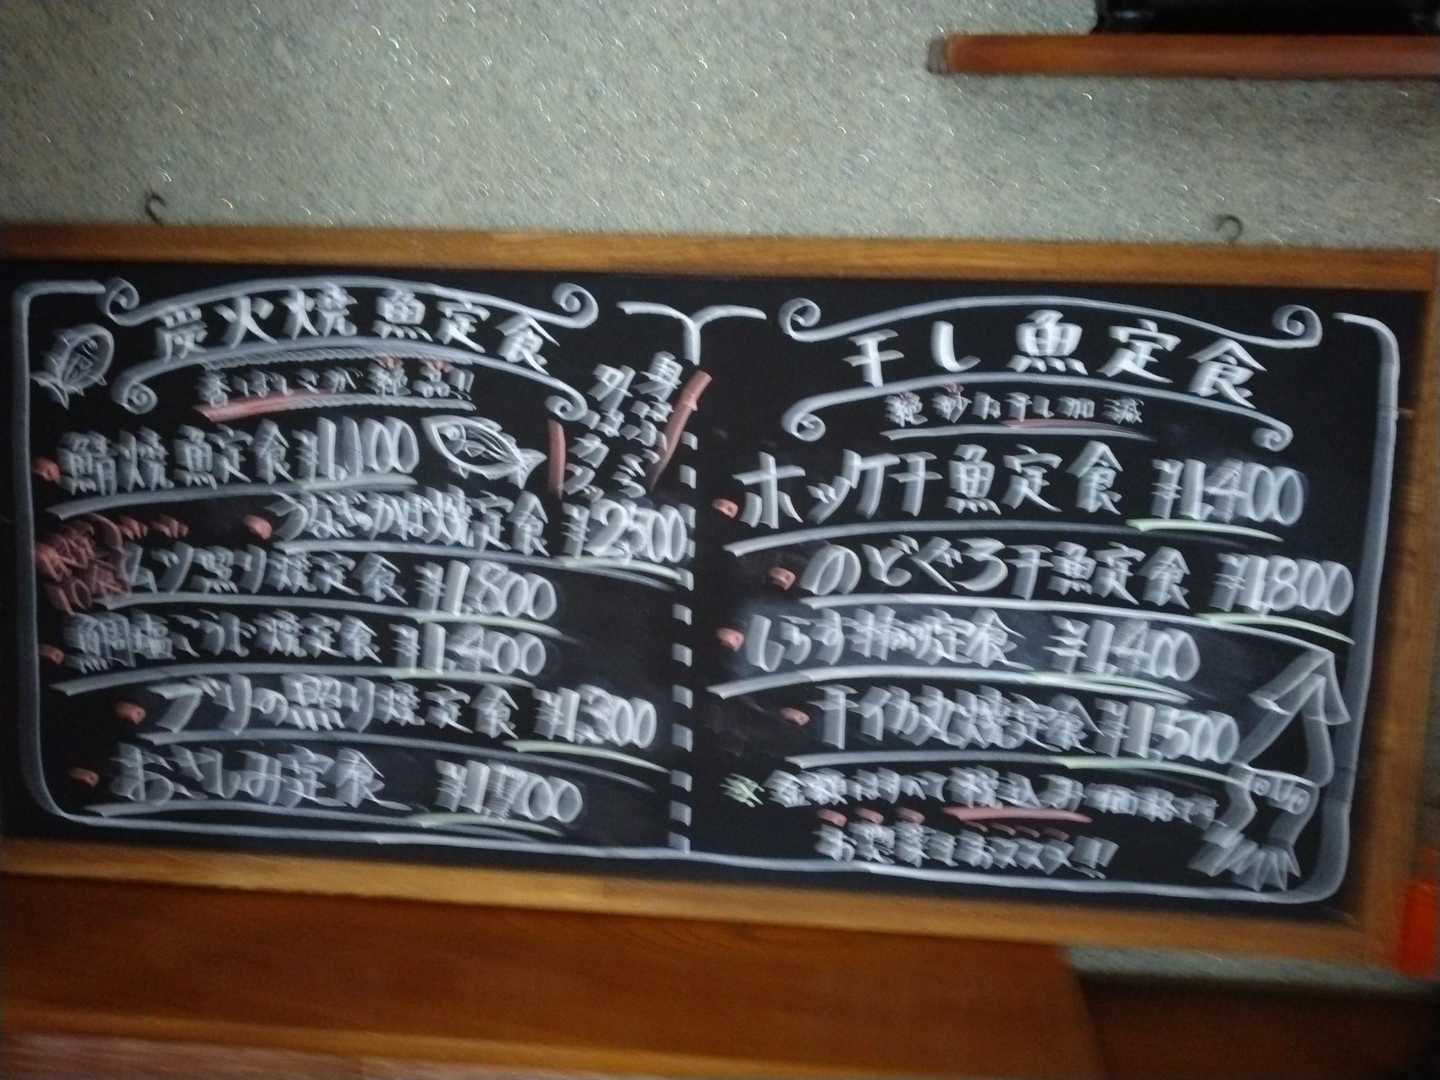 炭火焼魚定食
香ばしさが絶品!!
外はカリッ
身はふっくら
鯖焼魚定食 ¥1,100
うなぎかば焼定食 ¥2,500
ムツ照り焼定食 ¥1,800
鯛塩こうじ焼定食 ¥1,400
ブリの照り焼定食 ¥1,300
おさしみ定食 ¥1,700
干し魚定食
絶妙な干し加減
ホッケ干魚定食 ¥1,400
のどぐろ干魚定食 ¥1,800
しらす 定食 ¥1,400
干イカ丸焼定食 ¥1,500
※金額はすべて税込み価格です
お惣菜もおススメ!!